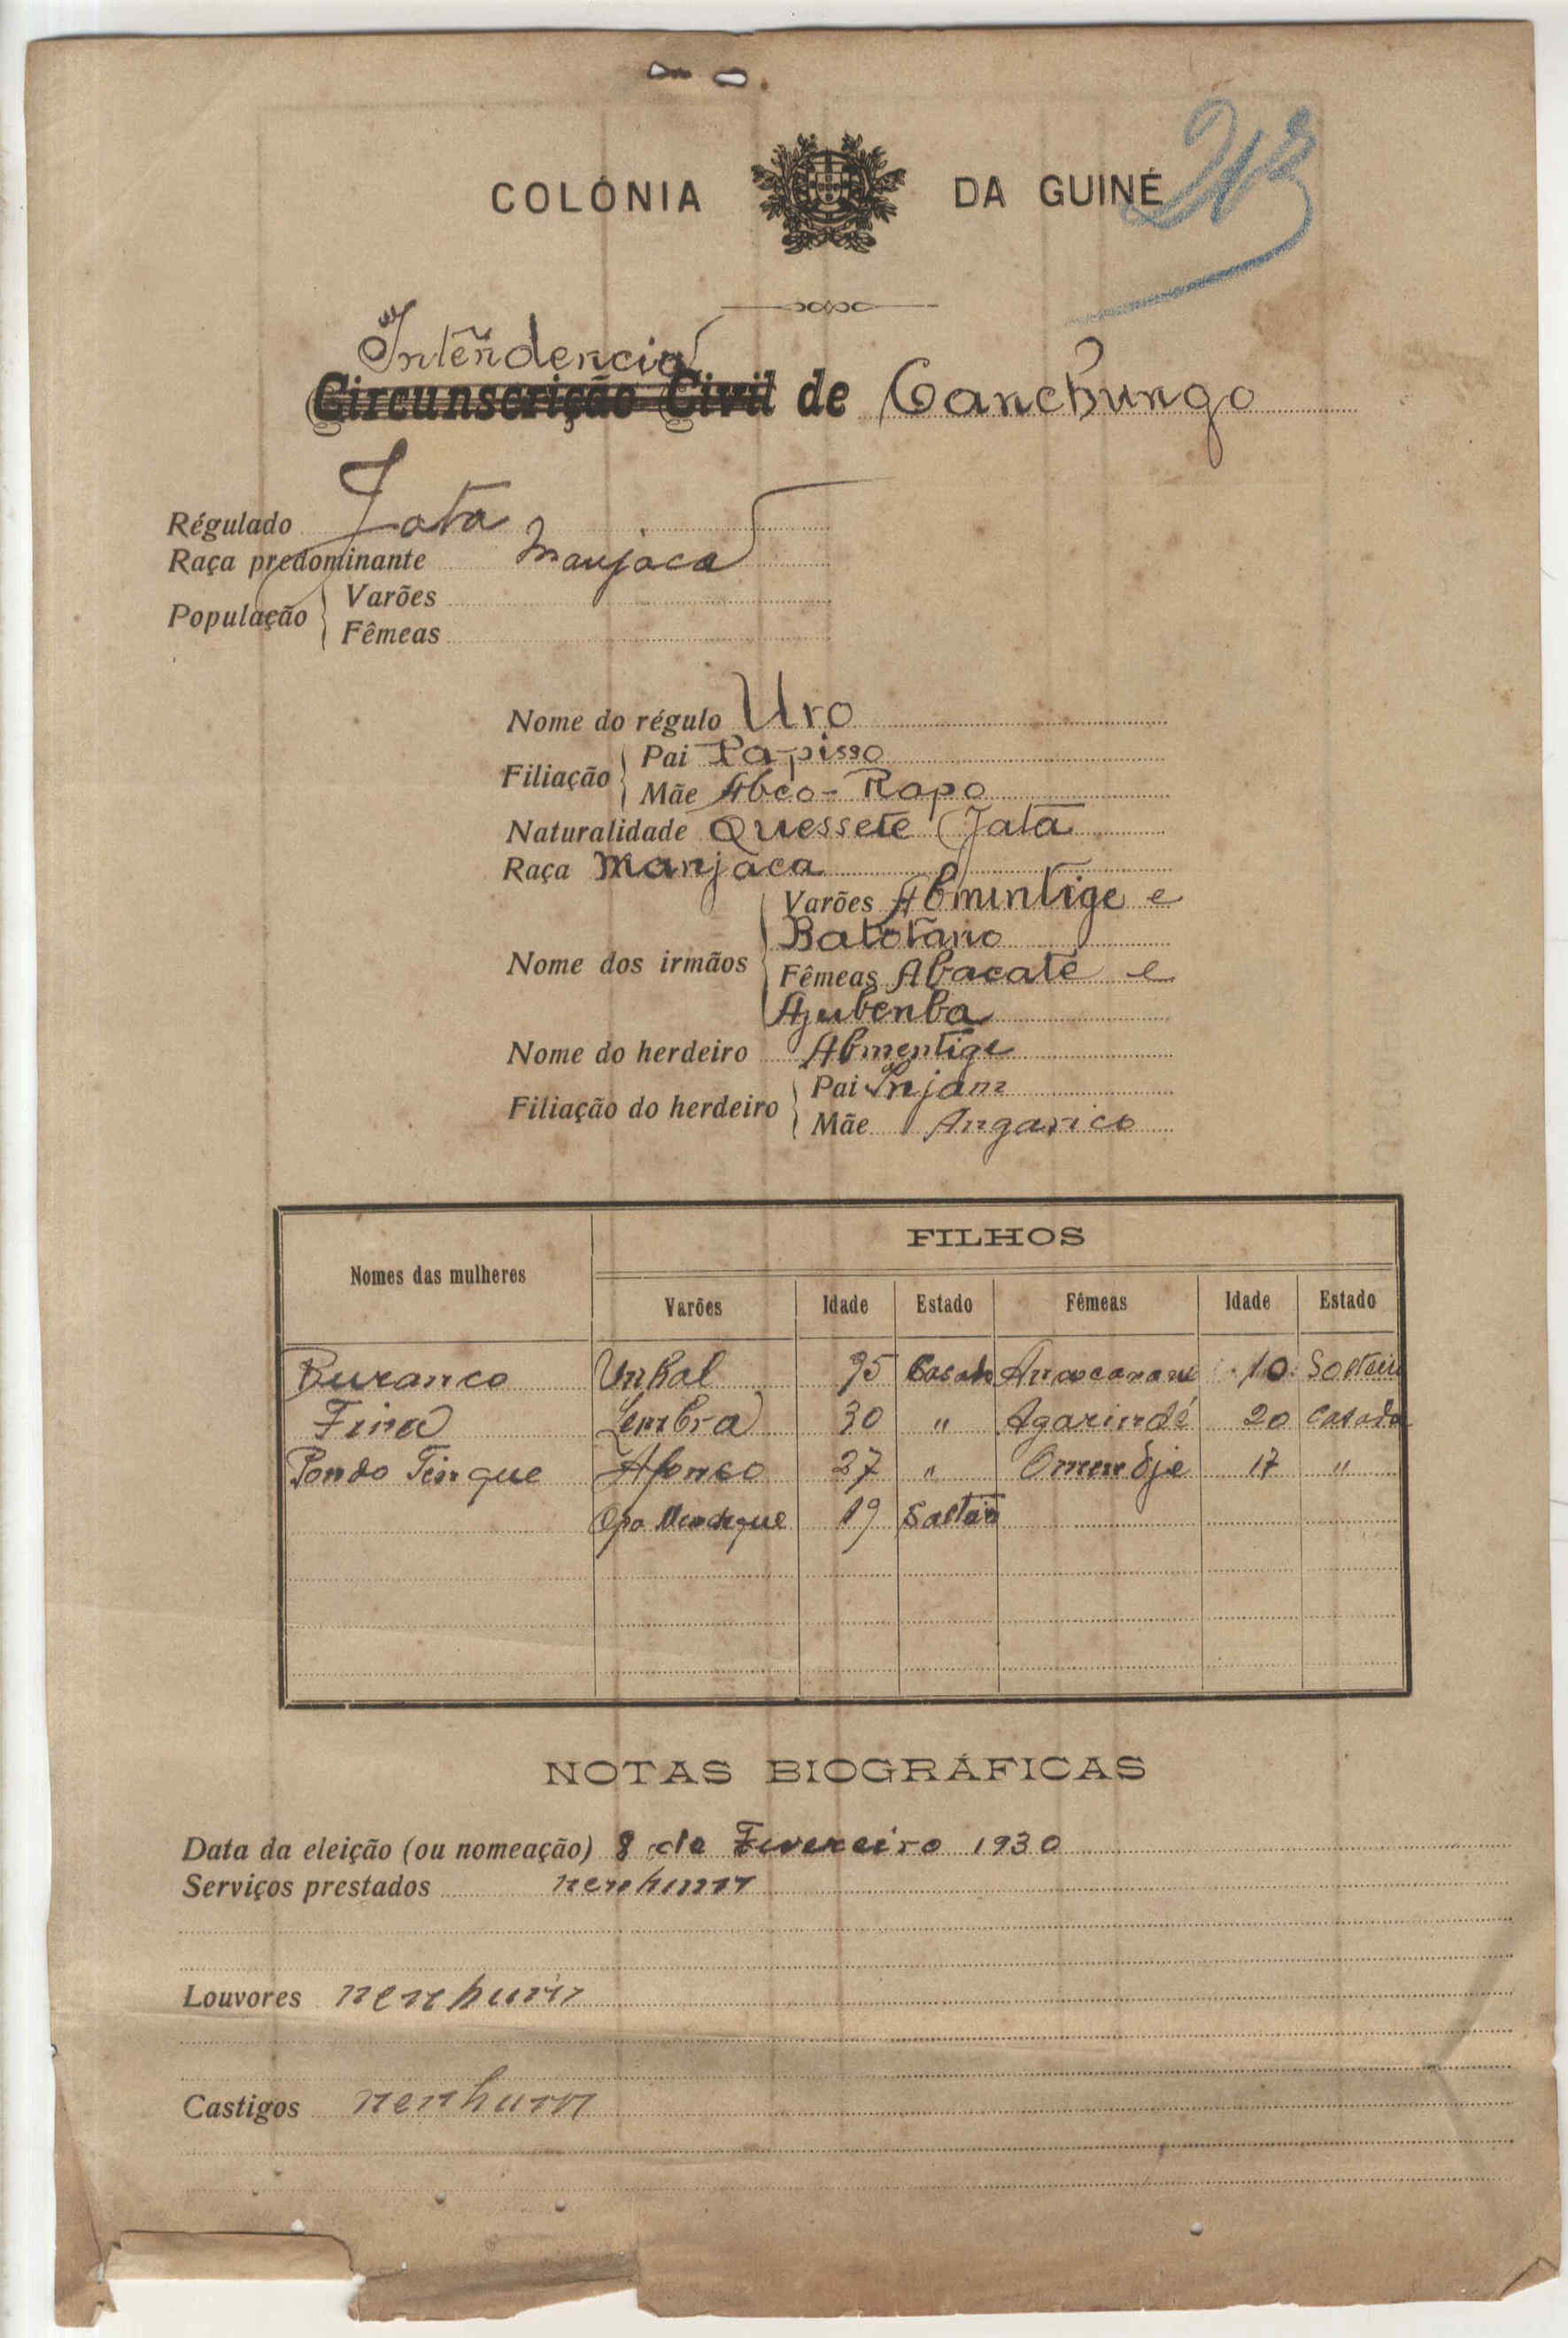 COLÓNIA DA GUINÉ
Intendencia
Circunscrição Civil de Canchungo
Régulado Jata
Raça predominante Manjaca
População
Varões
Fêmeas
Nome do régulo Uro
Filiação
Pai Papisso
Mãe Abco-Rapo
Naturalidade Quessete Jata
Raça Manjaca
Varões Abmintige e
Batotano
Nome dos irmãos
Fêmeas Abacate e
Ajubenba
Nome do herdeiro Abmentige
Filiação do herdeiro
Pai Injam
Mãe Angarico
Nomes das mulheres
FILHOS
Varões Idade Estado Fêmeas Idade Estado
Buranco Unkal 35 Casado 10 Solteira
Fina Lembra 30 " Agarindé 20 Casada
Pondo Tingue Afonso 27 " 17 "
19
NOTAS BIOGRÁFICAS
Data da eleição (ou nomeação) 8 de Fevereiro 1930
Serviços prestados nenhum
Louvores nenhum
Castigos nenhum